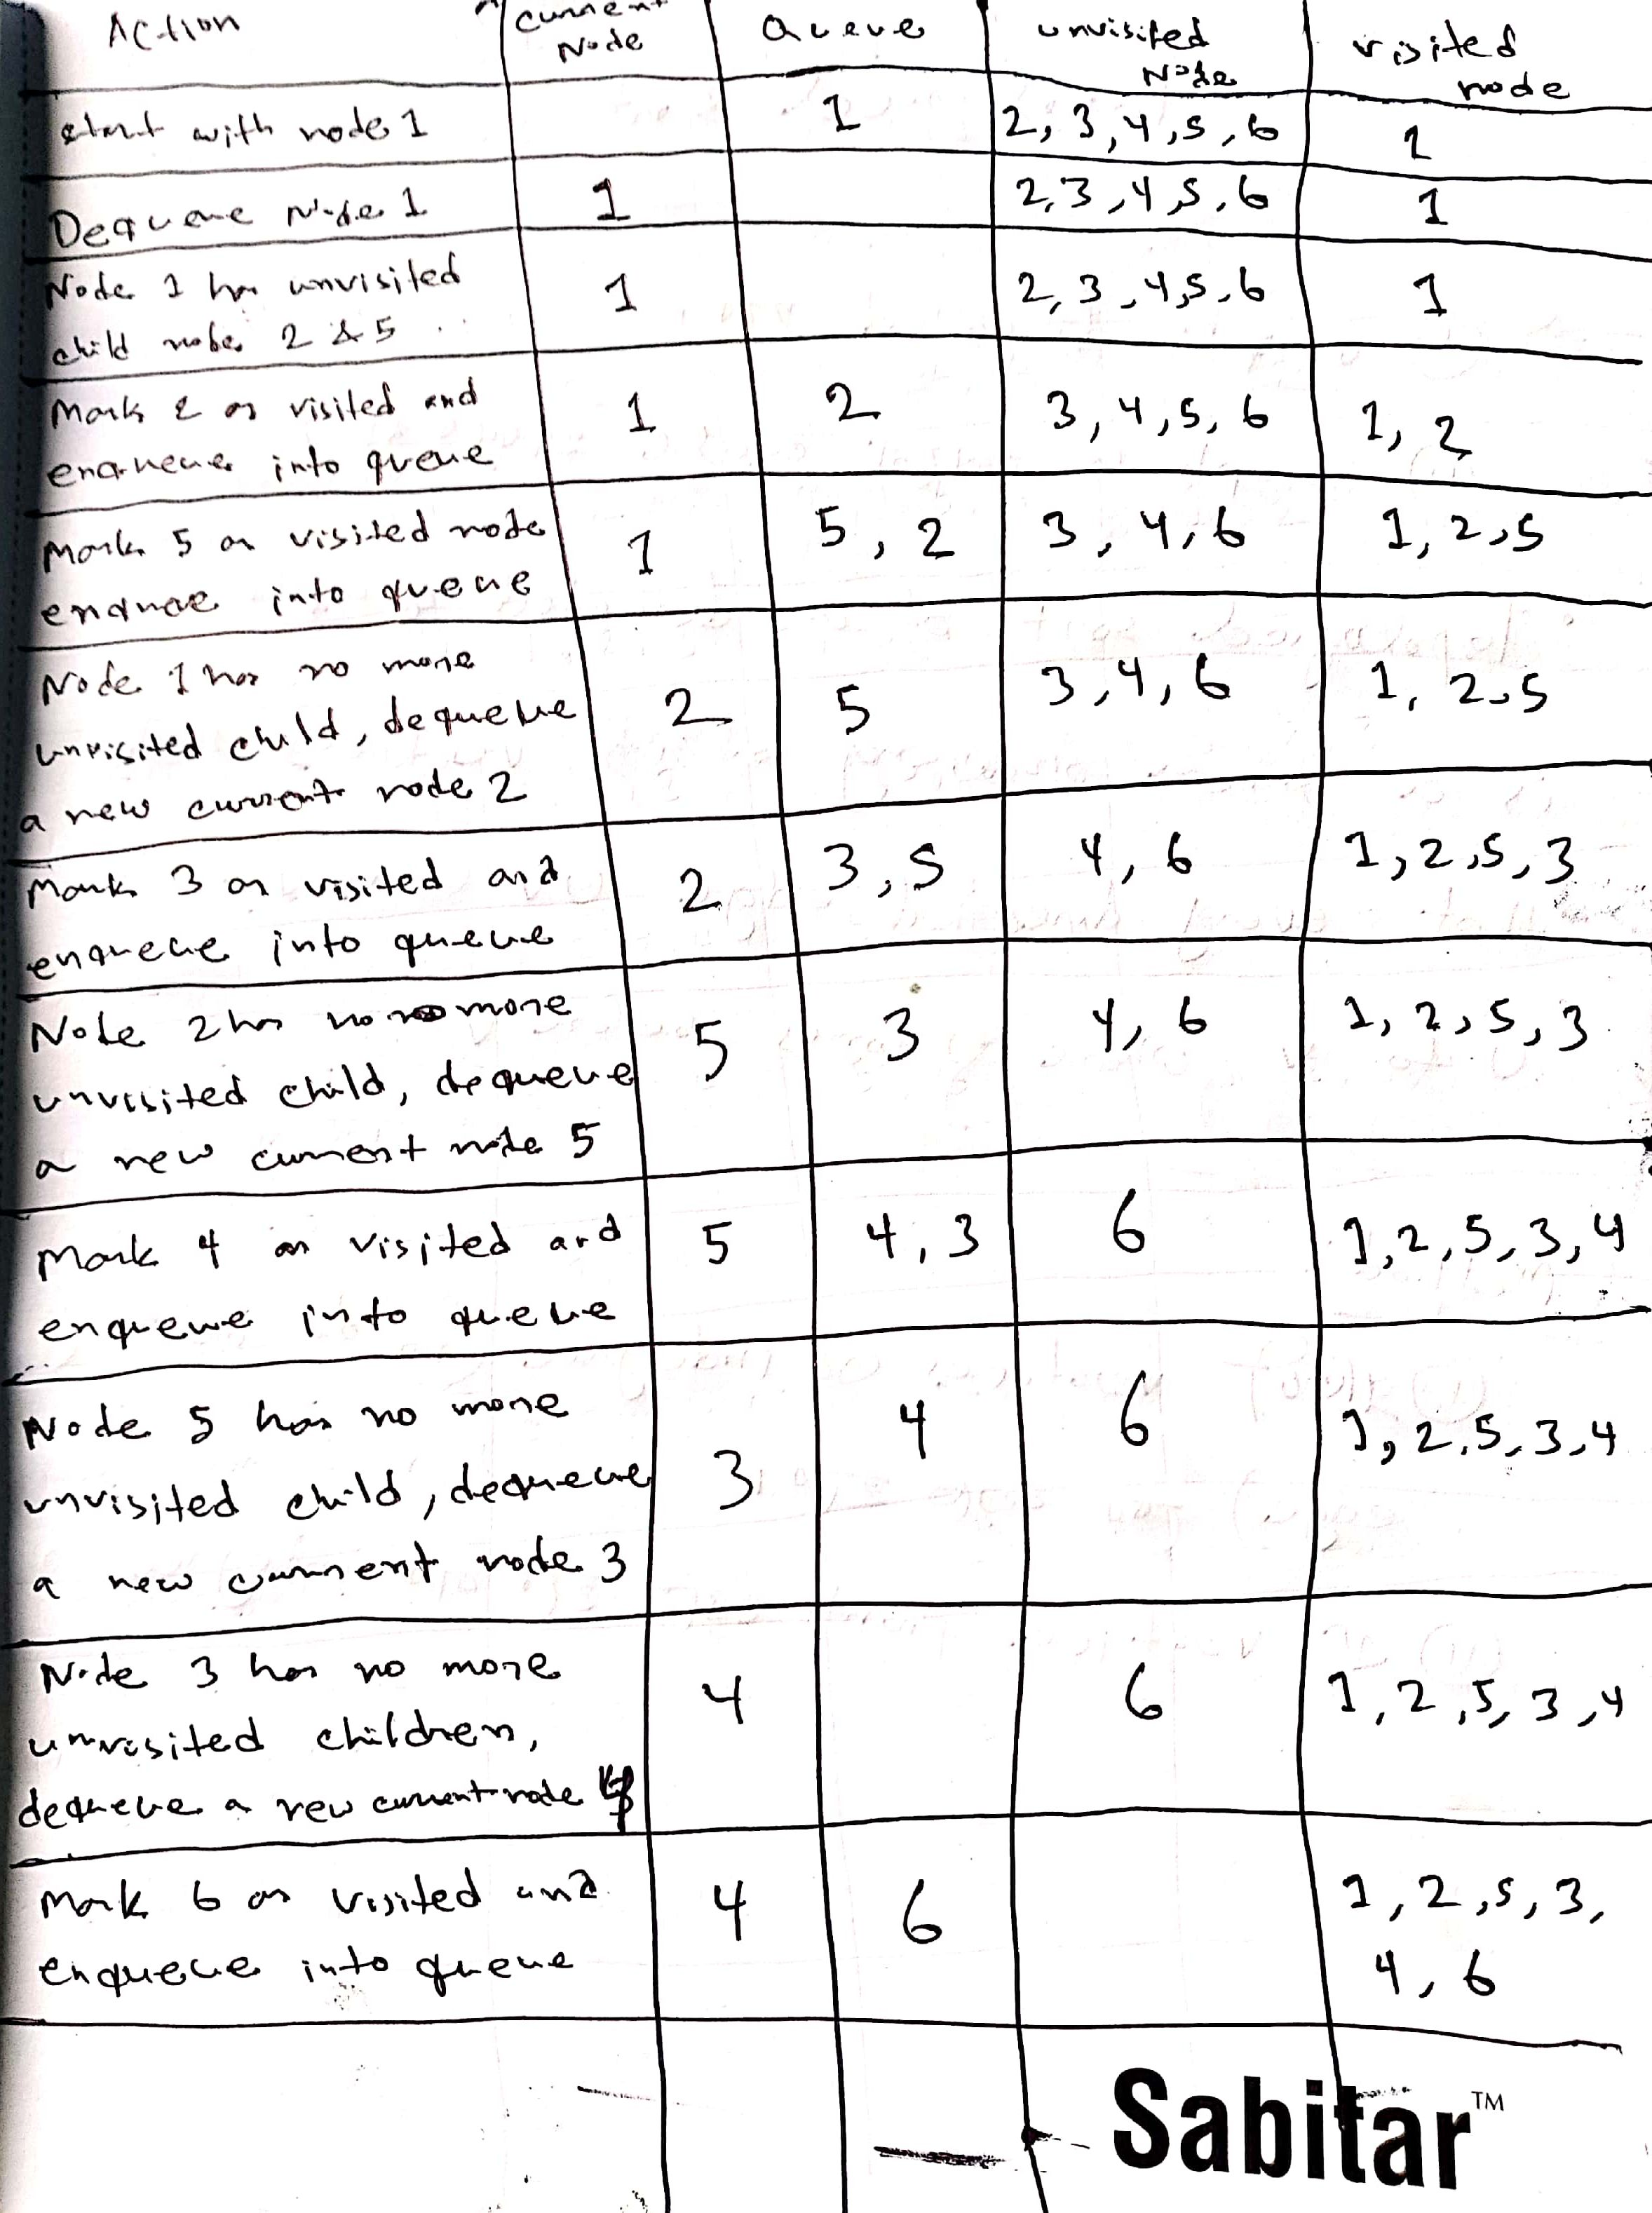 Action
current
Node
Queue
unvisited
Node
visited
node
start with node 1
1
2, 3, 4, 5, 6
1
Dequeue Node 1
1
2, 3, 4, 5, 6
1
Node 1 has unvisited
child nodes 2 & 5
1
2, 3, 4, 5, 6
1
Mark 2 as visited and
enqueue into queue
1
2
3, 4, 5, 6
1, 2
Mark 5 as visited node
enqueue into queue
1
5, 2
3, 4, 6
1, 2, 5
Node 1 has no more
unvisited child, dequeue
a new current node 2
2
5
3, 4, 6
1, 2, 5
Mark 3 as visited and
enqueue into queue
2
3, 5
4, 6
1, 2, 5, 3
Node 2 has no more
unvisited child, dequeue
a new current node 5
5
3
4, 6
1, 2, 5, 3
Mark 4 as visited and
enqueue into queue
5
4, 3
6
1, 2, 5, 3, 4
Node 5 has no more
unvisited child, dequeue
a new current node 3
3
4
6
1, 2, 5, 3, 4
Node 3 has no more
unvisited children,
dequeue a new current node 4
4
6
1, 2, 5, 3, 4
Mark 6 as visited and
enqueue into queue
4
6
1, 2, 5, 3,
4, 6
Sabitar™